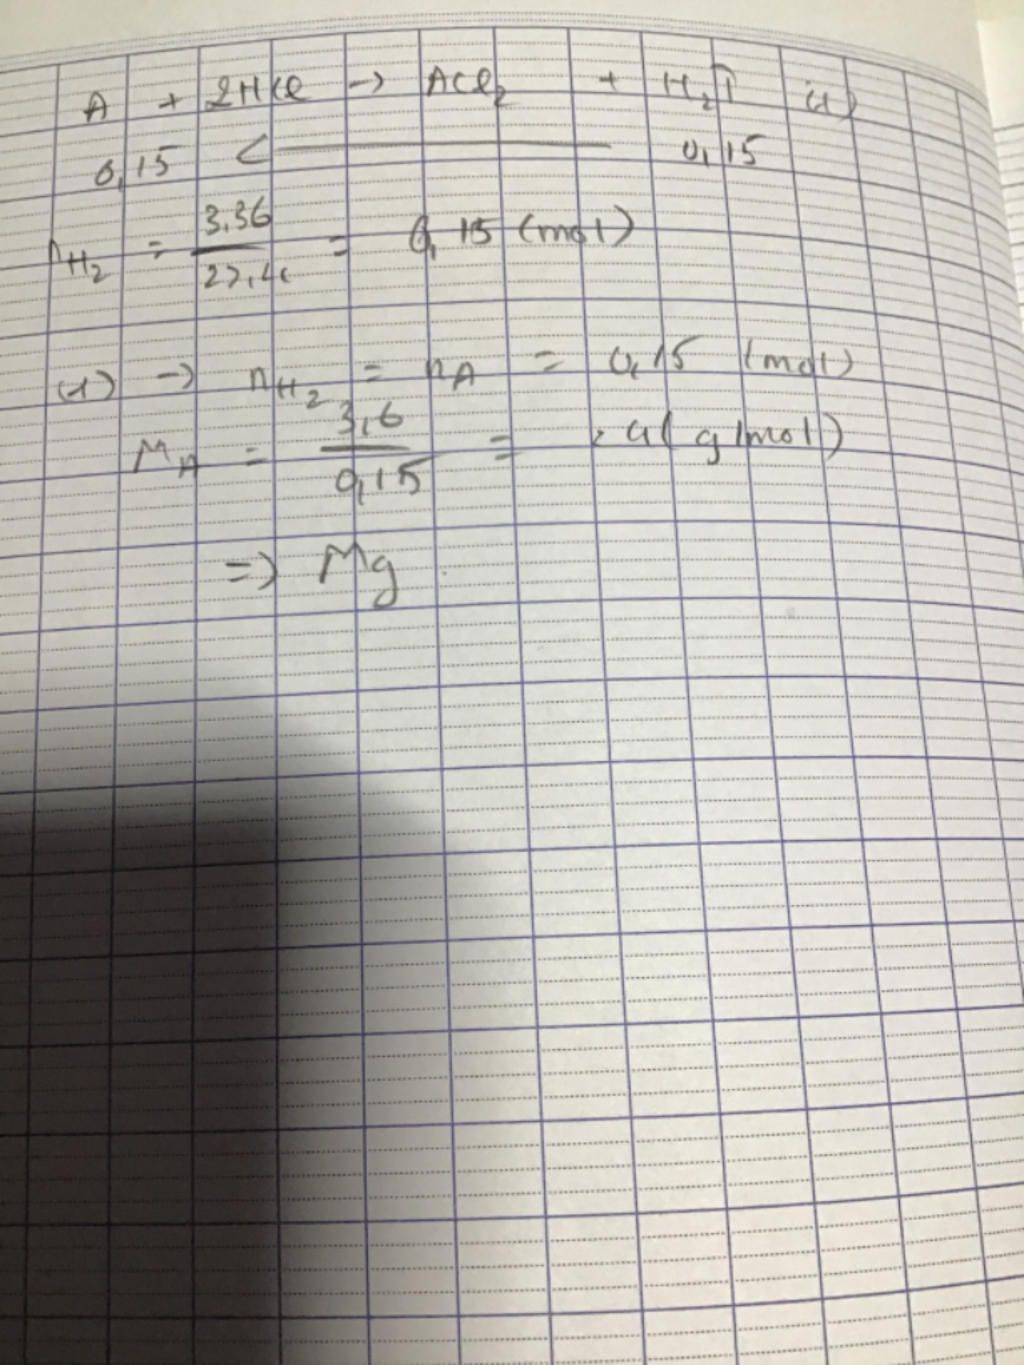 A + 2HCl -> ACl₂ + H₂↑ (1)
0,15 <——— 0,15
nH₂ = 3,36/22,4 = 0,15 (mol)
(1) -> nH₂ = nA = 0,15 (mol)
MA = 3,6/0,15 = 24 (g/mol)
=> Mg